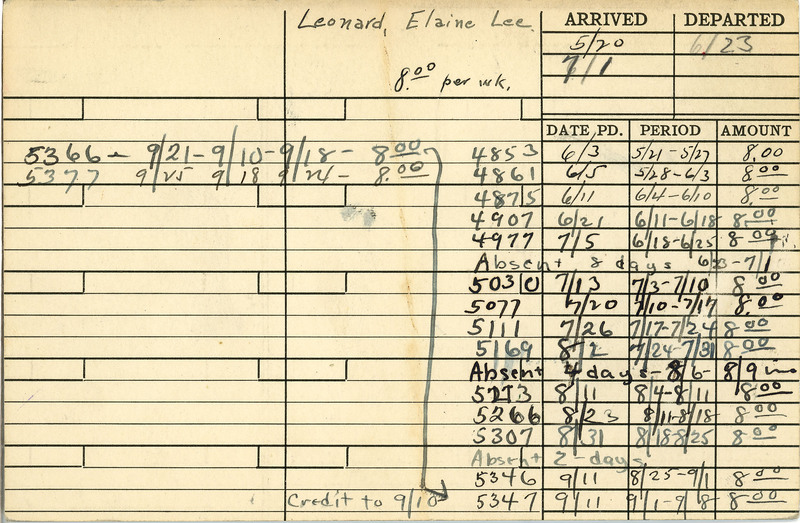 Leonard, Elaine Lee.
ARRIVED DEPARTED
5/20 6/23
7/1
8.00 per wk.
DATE PD. PERIOD AMOUNT
5366 - 9/21 - 9/10 - 9/18 - 8.00
5377 9/25 9/18 9/24 - 8.00
4853 6/3 5/21 - 5/27 8.00
4861 6/5 5/28 - 6/3 8.00
4875 6/11 6/4 - 6/10 8.00
4907 6/21 6/11 - 6/18 8.00
4977 7/5 6/18 - 6/25 8.00
Absent 8 days 6/23 - 7/1
5030 7/13 7/3 - 7/10 8.00
5077 7/20 7/10 - 7/17 8.00
5111 7/26 7/17 - 7/24 8.00
5169 8/2 7/24 - 7/31 8.00
Absent 4 days - 8/6 - 8/9 inc
5213 8/11 8/4 - 8/11 8.00
5266 8/23 8/11 - 8/18 8.00
5307 8/31 8/18 8/25 8.00
Absent 2 - days
5346 9/11 8/25 - 9/1 8.00
Credit to 9/10 5347 9/11 9/1 - 9/8 8.00